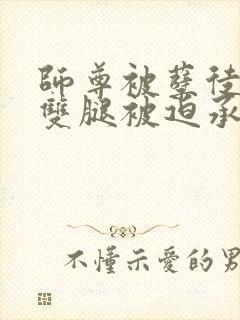 師尊被孽徒
雙腿被迫承
不懂示愛的男